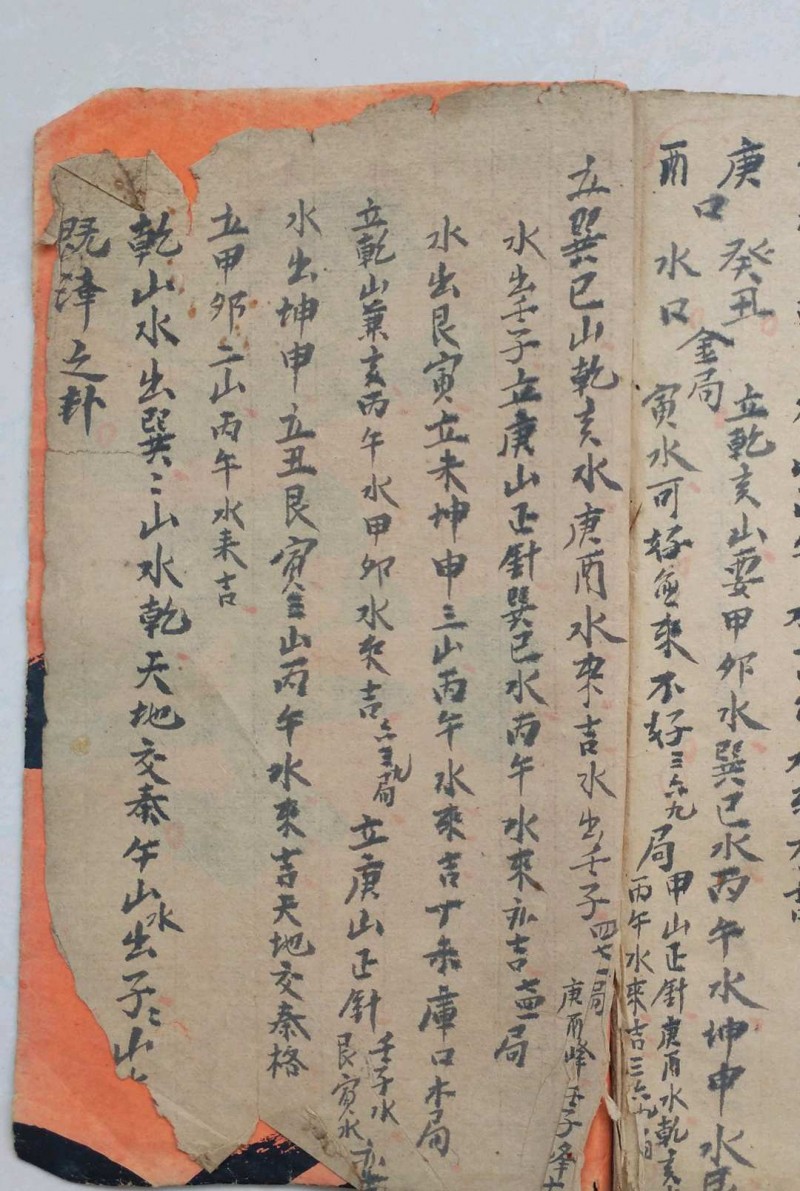 庚癸丑
立乾亥山要甲卯水巽巳水丙午水坤申水
酉
口
水口
金局
寅水可好兼來不好三六九局
甲山正針庚酉水乾亥
丙午水來吉三六九局
立巽巳山乾亥水庚酉水來吉水出壬子四七一局
庚酉峰壬子峰
水出壬子立庚山正針巽巳水丙午水來亦吉局
水出艮寅立未坤申三山丙午水來吉丁未庫口木局
立乾山兼亥丙午水甲卯水來吉六三九局
立庚山正針
壬子水
艮寅水
水出坤申立丑艮寅三山丙午水來吉天地交泰格
立甲卯二山丙午水来吉
乾山水出巽〻山水乾天地交泰午山水出子〻山
既濟之卦